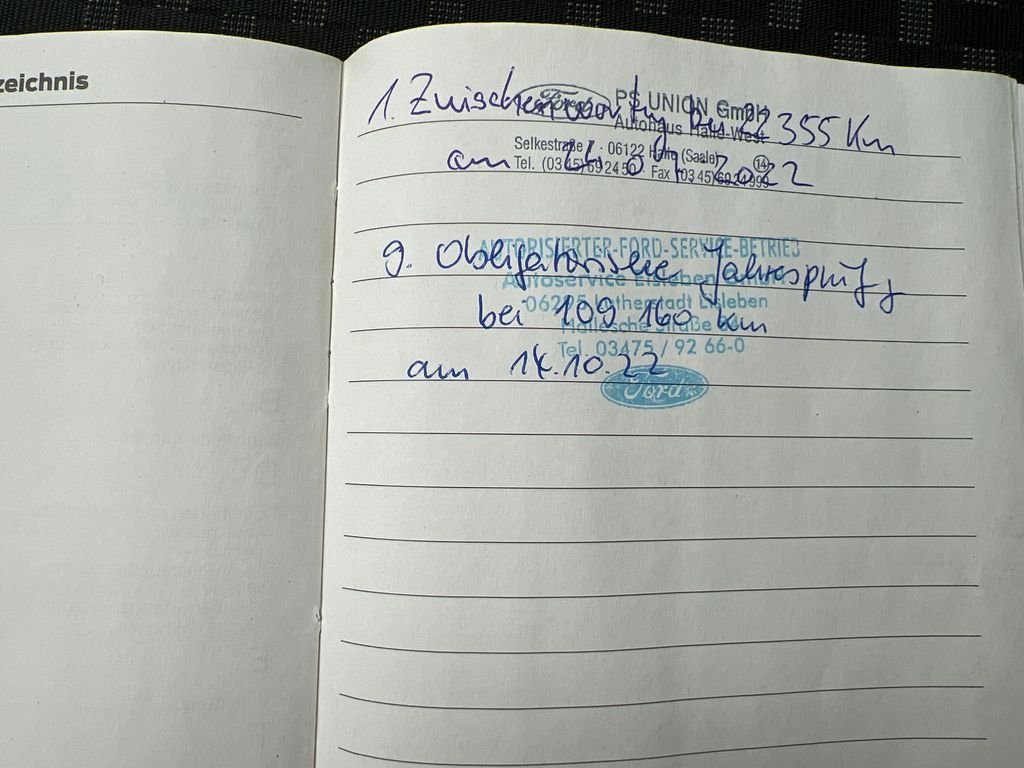 zeichnis
Ford
PS UNION GmbH
Autohaus Halle-West
1. Zwischenwartung bei 355 Km
Selkestraße · 06122 Halle (Saale)
Tel. (03 45) 69 24 50 · Fax (03 45) 69 24 999
14
am 2022
AUTORISIERTER-FORD-SERVICE-BETRIEB
9. Obligatorische Jahresprüfg
Autoservice Eisleben GmbH
06295 Lutherstadt Eisleben
bei 109 160 km
Hallesche Straße
Tel. 03475 / 92 66-0
am 14.10.22
Ford